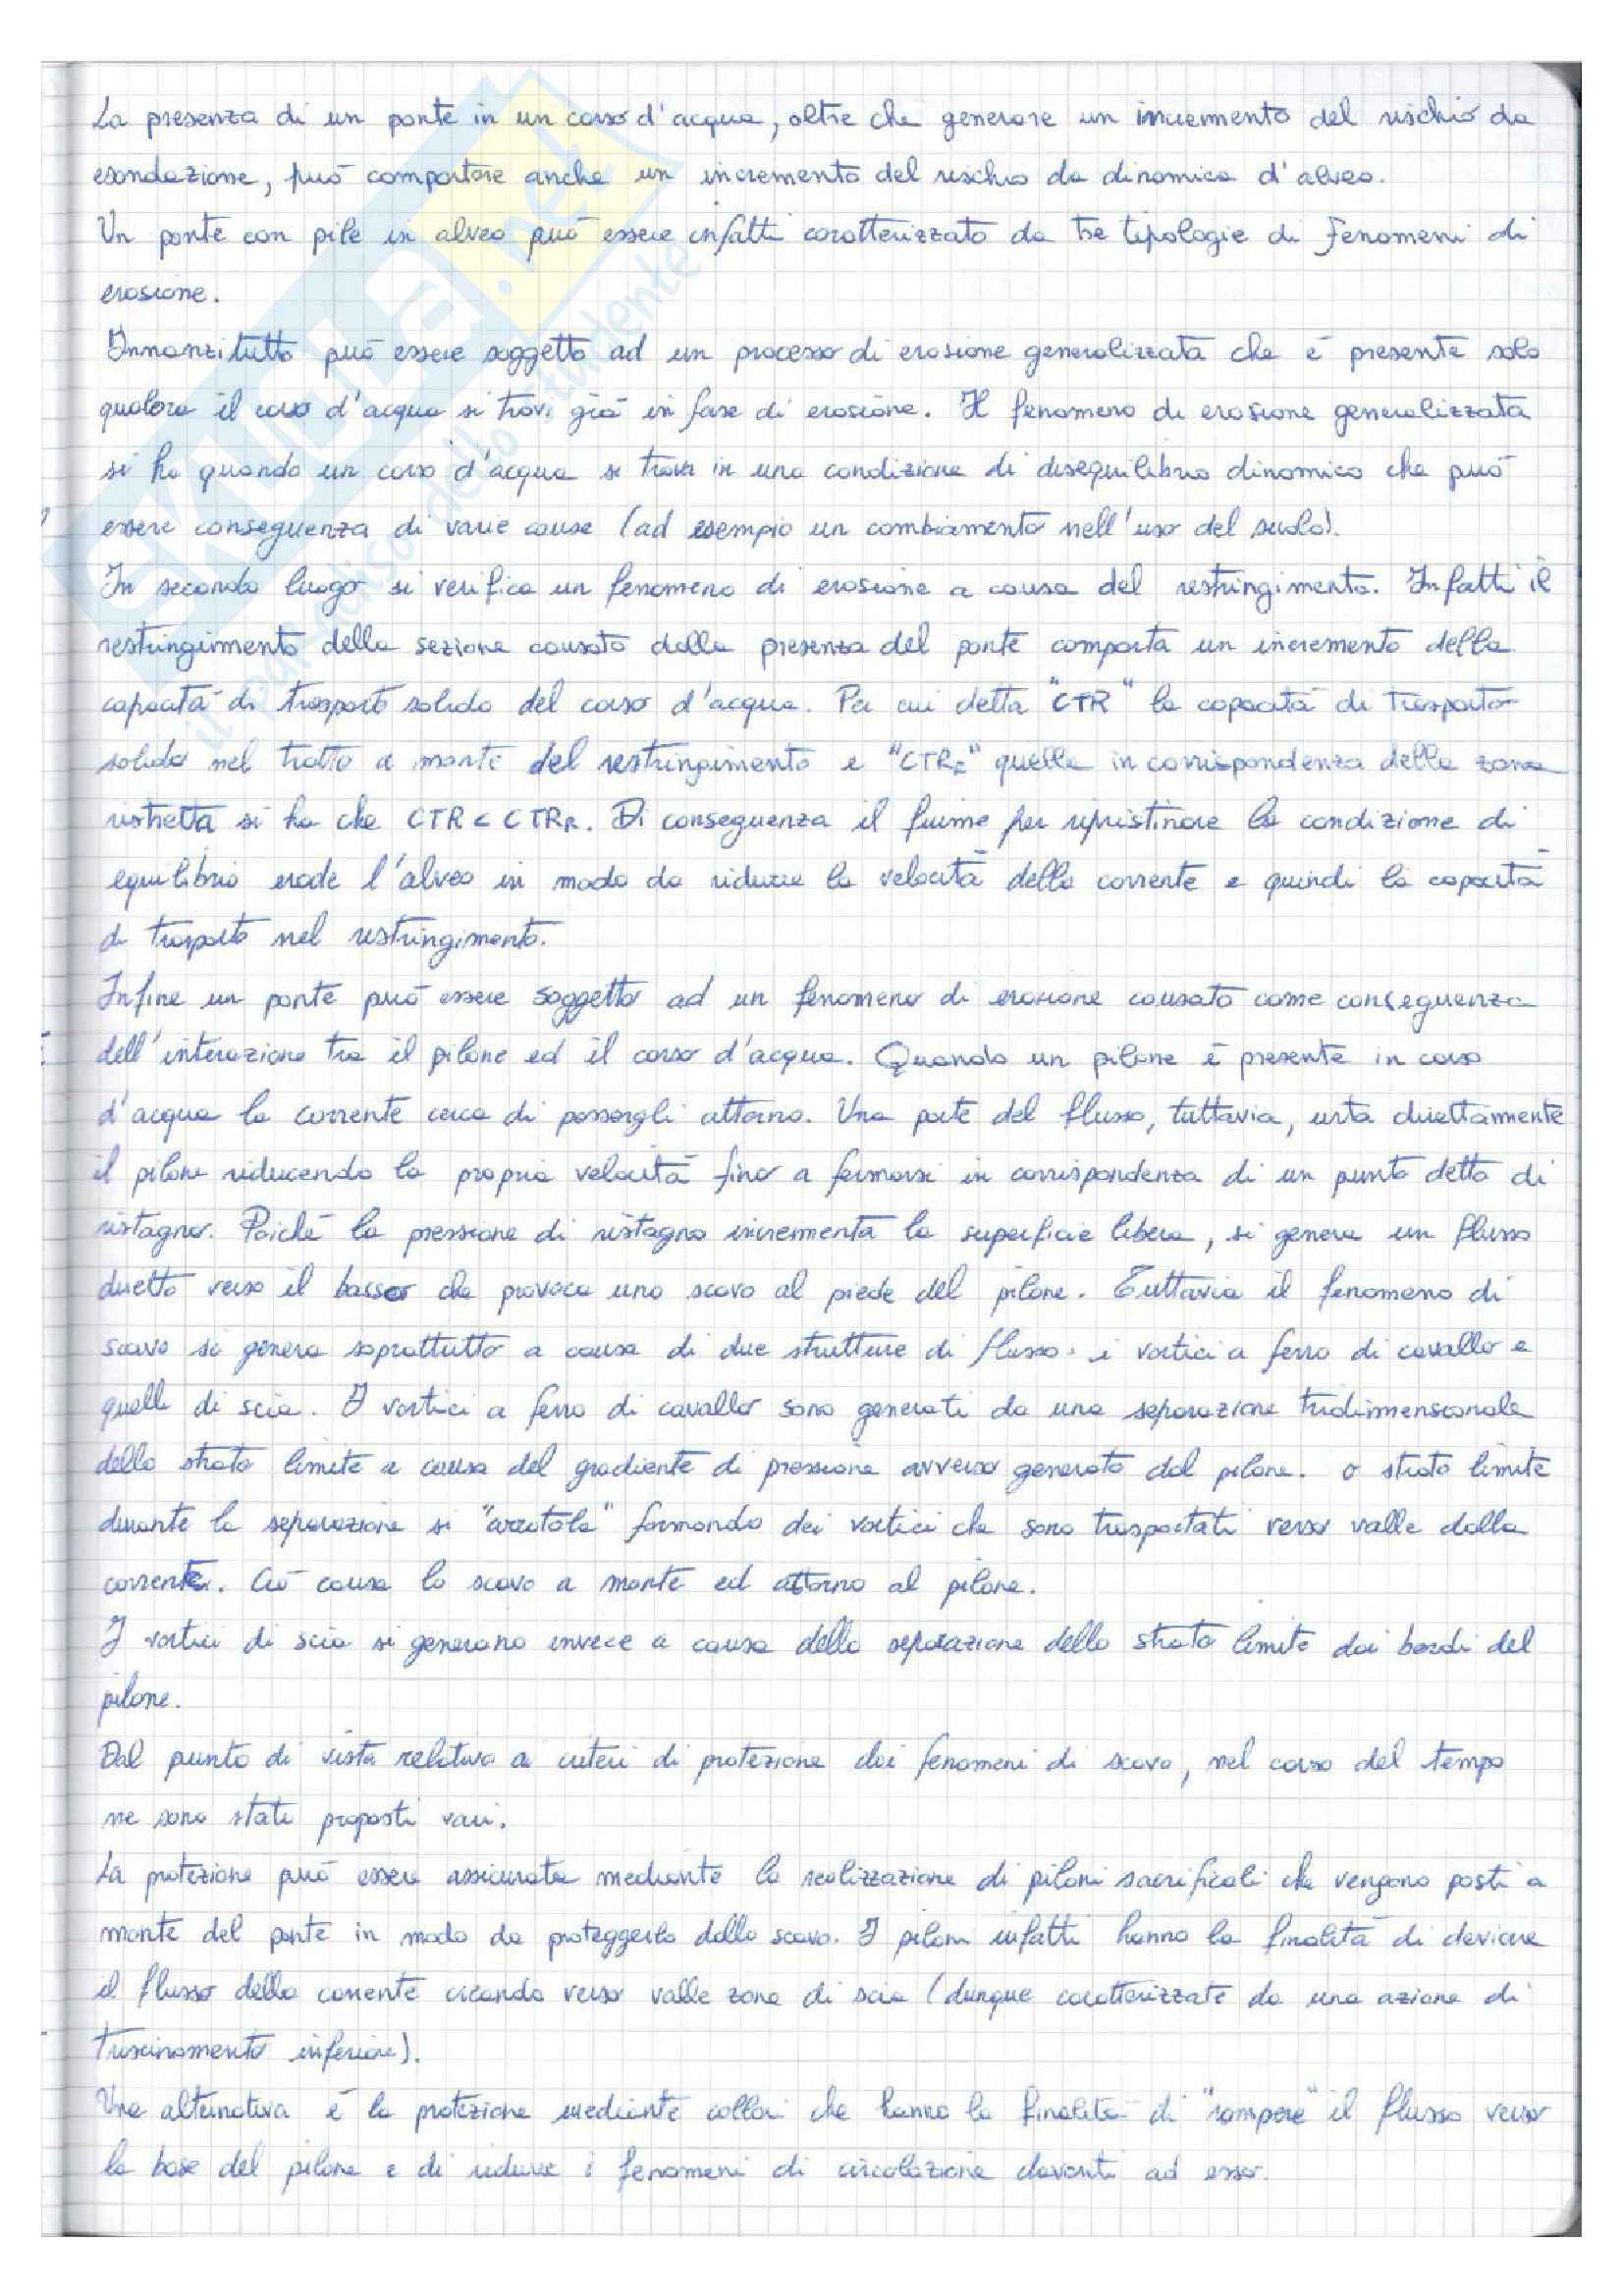 La presenza di un ponte in un corso d'acqua, oltre che generare un incremento del rischio da
esondazione, può comportare anche un incremento del rischio da dinamica d'alveo.
Un ponte con pile in alveo può essere infatti caratterizzato da tre tipologie di fenomeni di
erosione.
Innanzitutto può essere soggetto ad un processo di erosione generalizzata che è presente solo
qualora il corso d'acqua si trovi già in fase di erosione. Il fenomeno di erosione generalizzata
si ha quando un corso d'acqua si trova in una condizione di disequilibrio dinamico che può
essere conseguenza di varie cause (ad esempio un cambiamento nell'uso del suolo).
In secondo luogo si verifica un fenomeno di erosione a causa del restringimento. Infatti il
restringimento della sezione causato dalla presenza del ponte comporta un incremento della
capacità di trasporto solido del corso d'acqua. Per cui detta "CTR" la capacità di trasporto
solido nel tratto a monte del restringimento e "CTRR" quella in corrispondenza della zona
ristretta si ha che CTR < CTRR. Di conseguenza il fiume per ripristinare la condizione di
equilibrio erode l'alveo in modo da ridurre la velocità della corrente e quindi la capacità
di trasporto nel restringimento.
Infine un ponte può essere soggetto ad un fenomeno di erosione causato come conseguenza
dell'interazione tra il pilone ed il corso d'acqua. Quando un pilone è presente in corso
d'acqua la corrente cerca di passargli attorno. Una parte del flusso, tuttavia, urta direttamente
il pilone riducendo la propria velocità fino a fermarsi in corrispondenza di un punto detto di
ristagno. Poiché la pressione di ristagno incrementa la superficie libera, si genera un flusso
diretto verso il basso che provoca uno scavo al piede del pilone. Tuttavia il fenomeno di
scavo si genera soprattutto a causa di due strutture di flusso: i vortici a ferro di cavallo e
quelli di scia. I vortici a ferro di cavallo sono generati da una separazione tridimensionale
dello strato limite a causa del gradiente di pressione avverso generato dal pilone. o strato limite
durante la separazione si "arrotola" formando dei vortici che sono trasportati verso valle dalla
corrente. Ciò causa lo scavo a monte ed attorno al pilone.
I vortici di scia si generano invece a causa della separazione dello strato limite dai bordi del
pilone.
Dal punto di vista relativo ai criteri di protezione dai fenomeni di scavo, nel corso del tempo
ne sono stati proposti vari.
La protezione può essere assicurata mediante la realizzazione di piloni sacrificali che vengono posti a
monte del ponte in modo da proteggerlo dallo scavo. I piloni infatti hanno la finalità di deviare
il flusso della corrente creando verso valle zone di scia (dunque caratterizzate da una azione di
trascinamento inferiore).
Una alternativa è la protezione mediante collari che hanno la finalità di "rompere" il flusso verso
la base del pilone e di ridurre i fenomeni di circolazione davanti ad esso.
SKUOLA.net
il paradiso dello studente